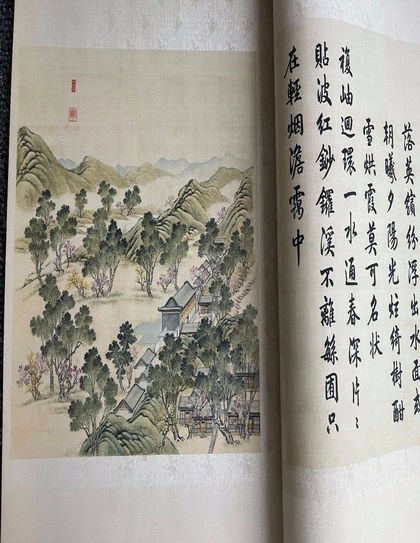 落英繽紛浮出水面或
朝曦夕陽光炫綺樹酣
雪烘霞莫可名狀
複岫迴環一水通春深片〻
貼波紅鈔鑼溪不離縣圃只
在輕烟澹靄中